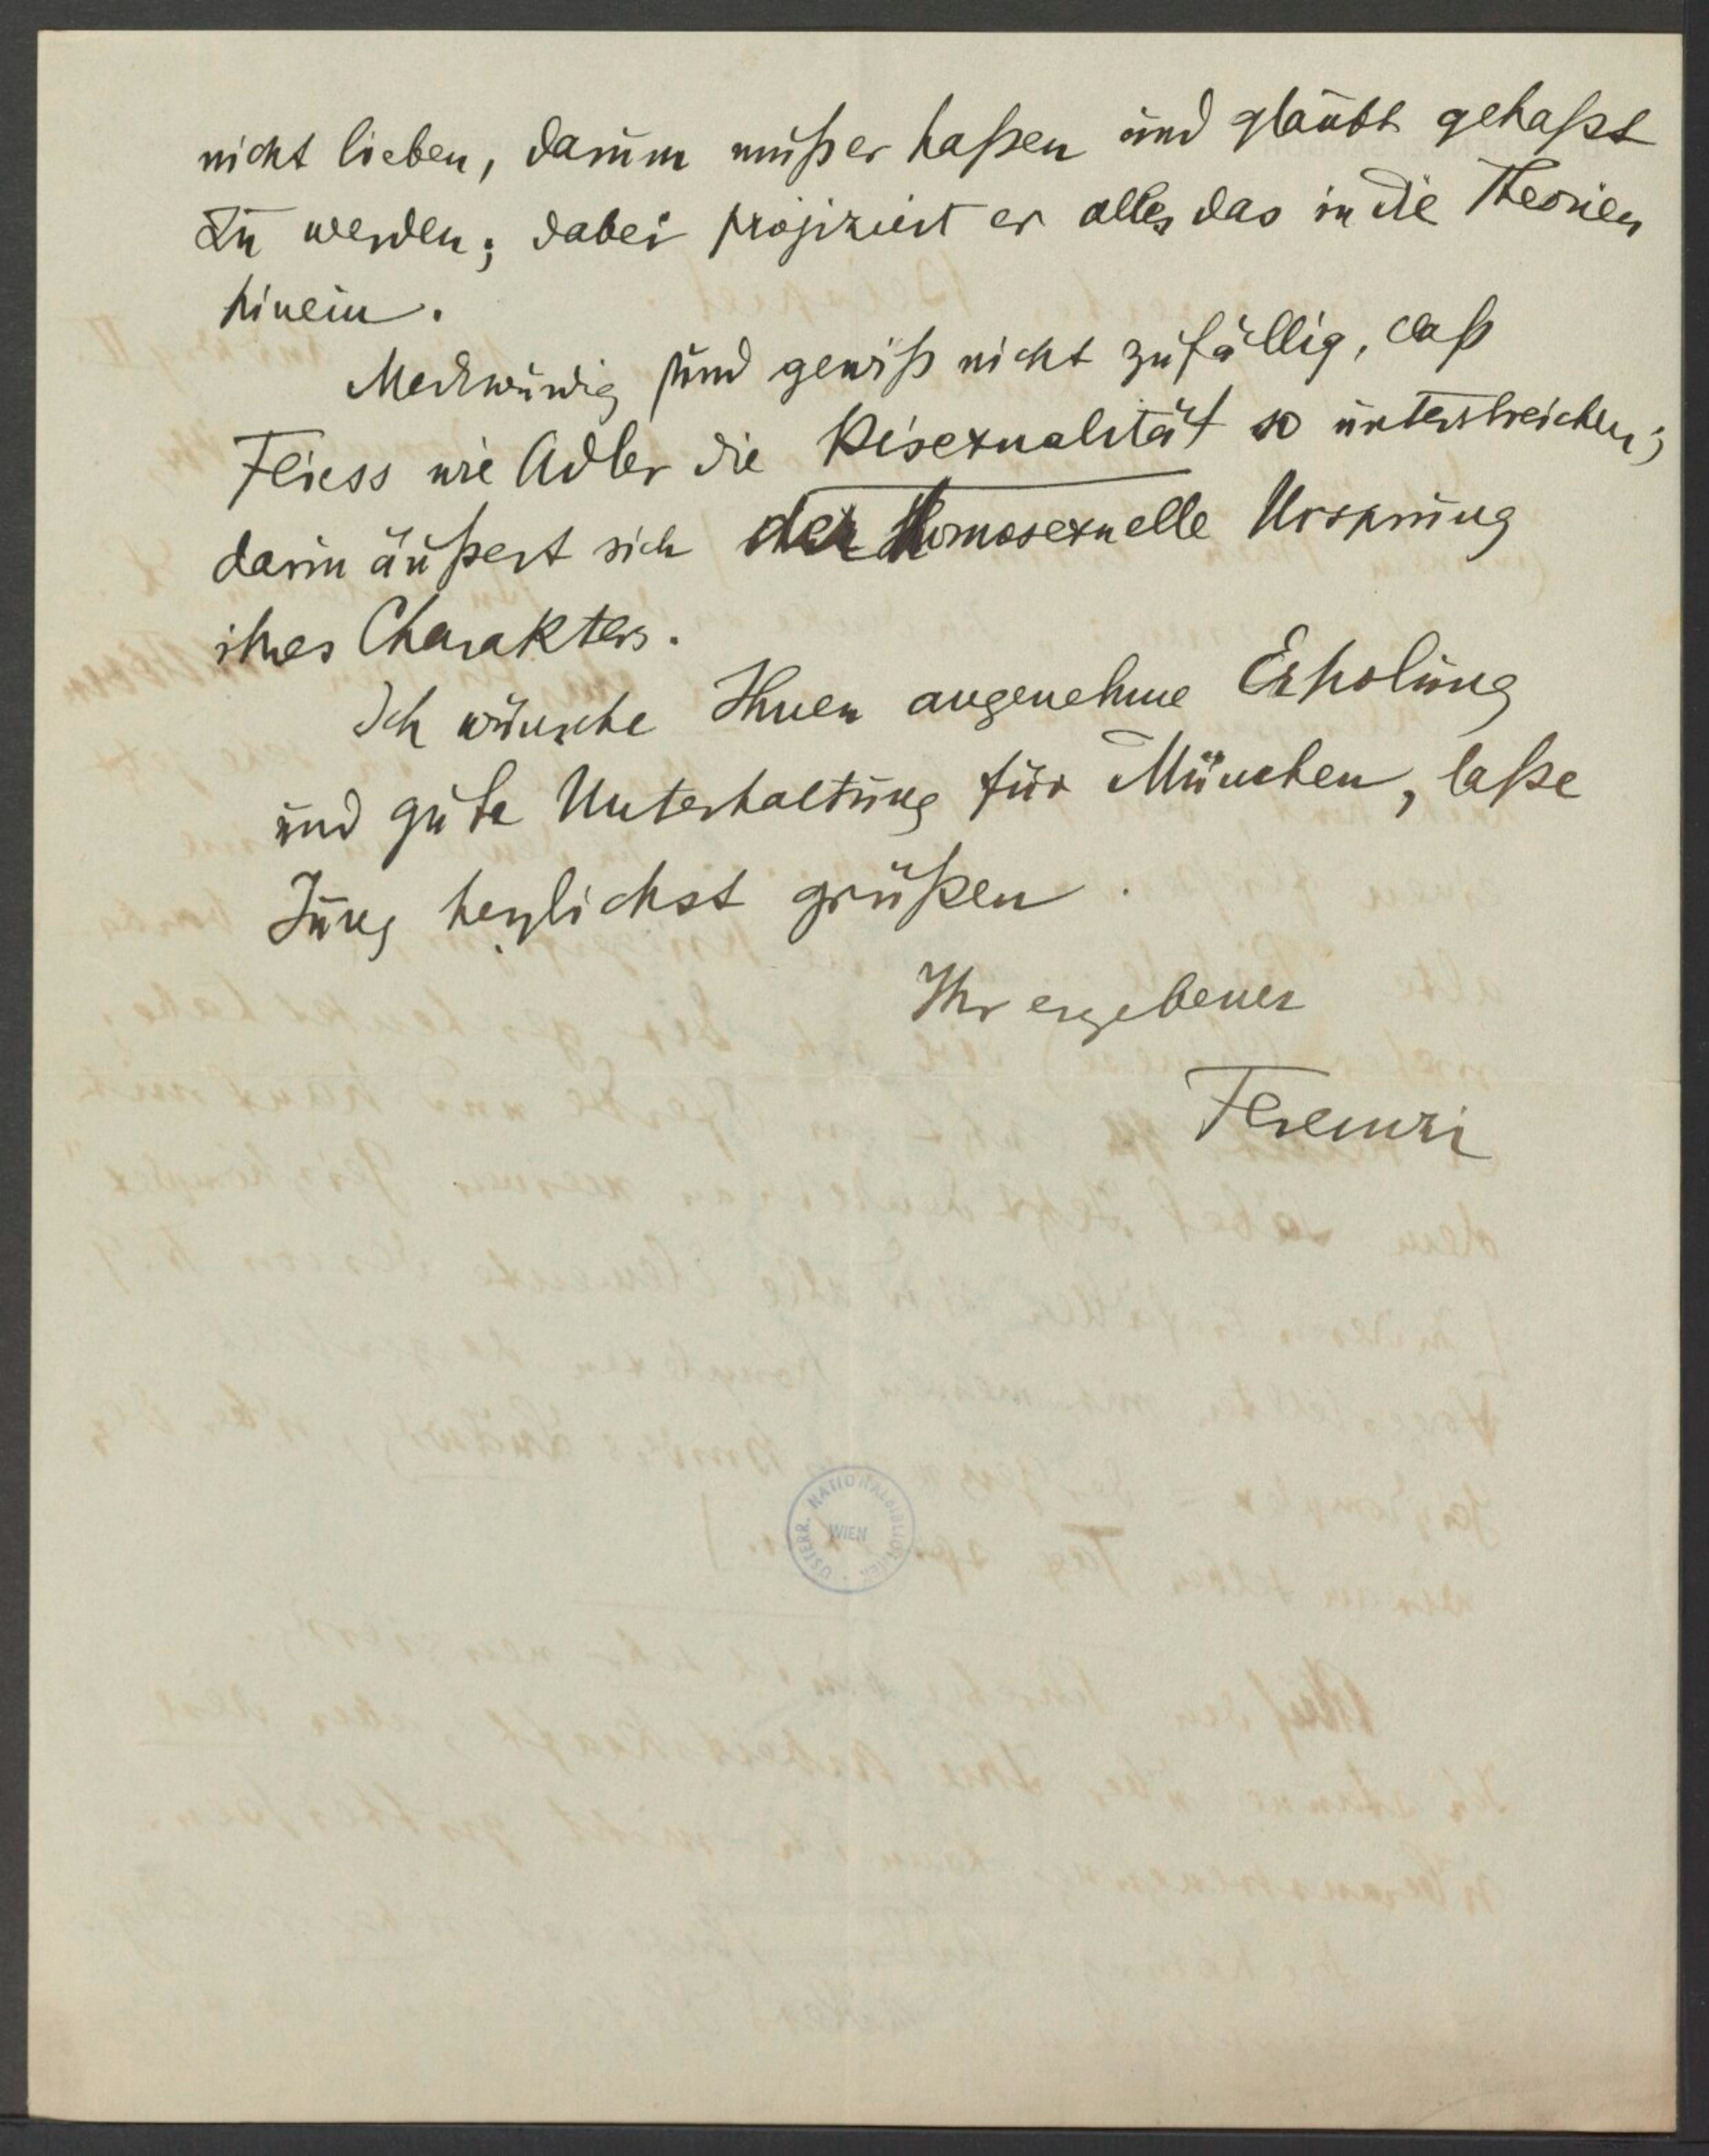 nicht lieben, darum muß er haßen und glaubt gehaßt
zu werden; dabei projiziert er alles das in die Theorien
hinein.
Merkwürdig und gewiß nicht zufällig, daß
Fliess wie Adler die Bisexualität so unterstreichen;
darin äußert sich der Homosexuelle Ursprung
ihres Charakters.
Ich wünsche Ihnen angenehme Erholung
und gute Unterhaltung für München, laße
Jung herzlichst grüßen.
Ihr ergebener
Ferenczi
ÖSTERR. NATIONALBIBLIOTHEK
WIEN